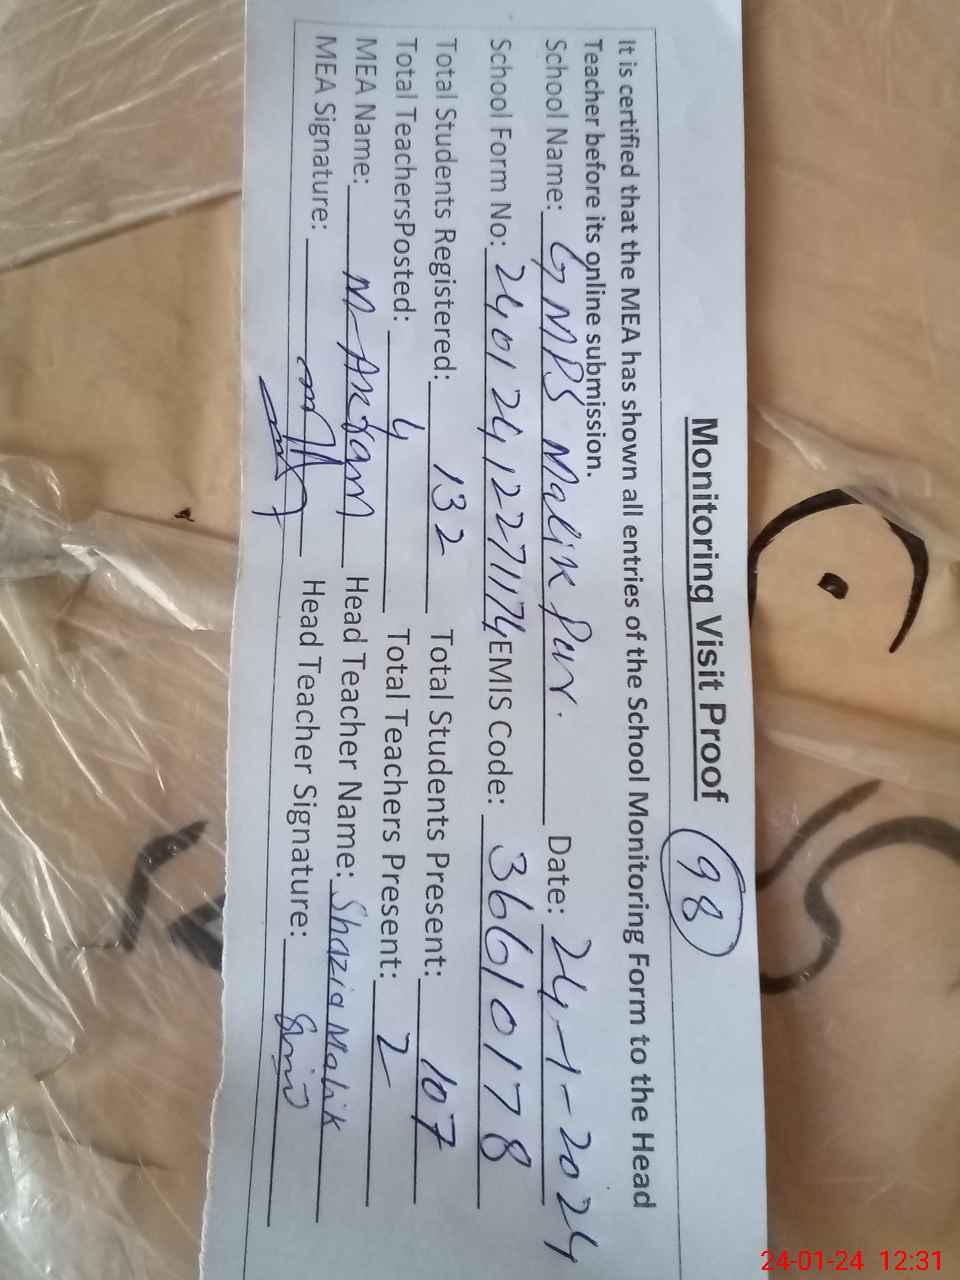 Monitoring Visit Proof 98
It is certified that the MEA has shown all entries of the School Monitoring Form to the Head
Teacher before its online submission.
School Name: GMPS Malik Pur. Date: 24-1-2024
School Form No: 24012412271174 EMIS Code: 36610178
Total Students Registered: 132 Total Students Present: 107
Total TeachersPosted: 4 Total Teachers Present: 2
MEA Name: M-Akram Head Teacher Name: Shazia Malik
MEA Signature: Head Teacher Signature:
24-01-24 12:31